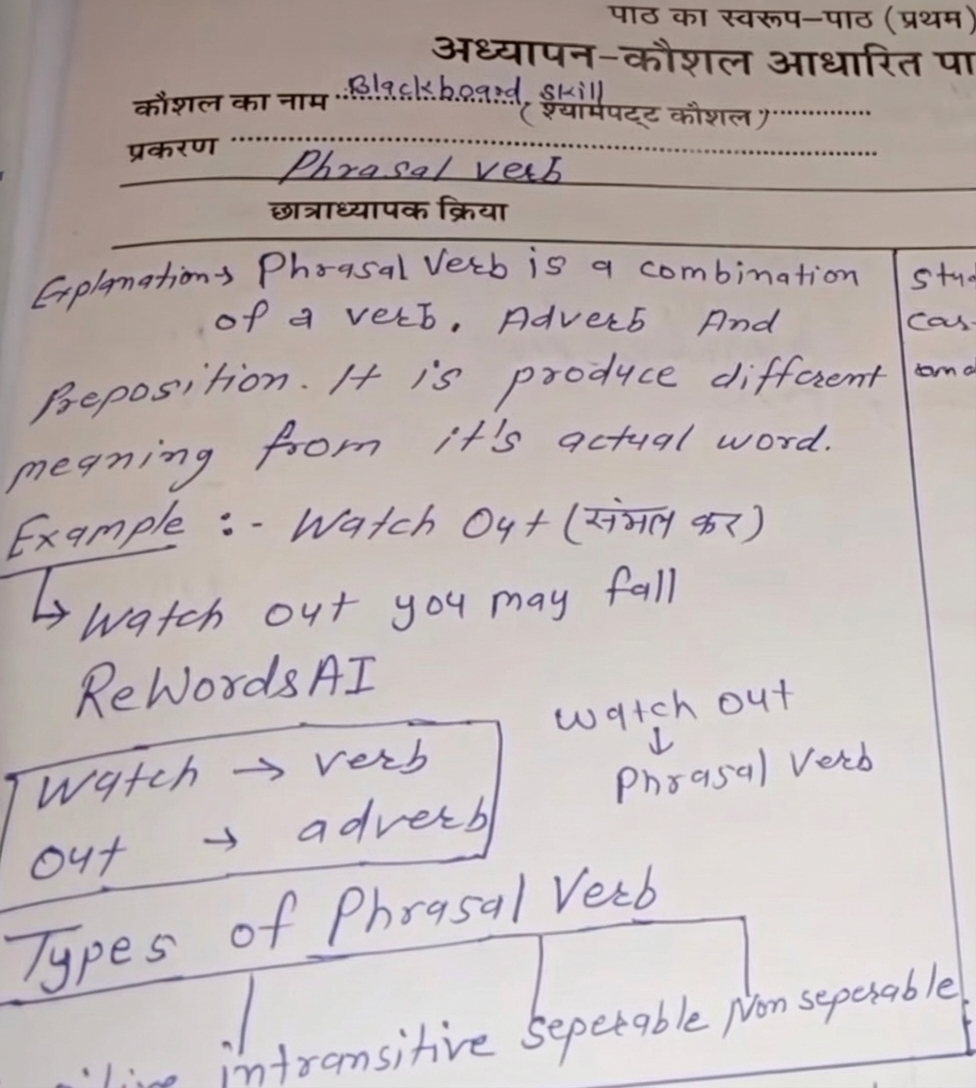 पाठ का स्वरूप-पाठ (प्रथम)
अध्यापन-कौशल आधारित पा
कौशल का नाम Blackboard skill
(श्यामपट्ट कौशल)
प्रकरण
Phrasal verb
छात्राध्यापक क्रिया
Explanation→ Phrasal Verb is a combination
of a verb. Adverb And
Preposition. It is produce different
meaning from it's actual word.
Example :- Watch Out (संभल कर)
↳ Watch out you may fall
ReWordsAI
Watch → verb
Out → adverb
Watch out
↓
Phrasal Verb
Types of Phrasal Verb
intransitive seperable Non seperable